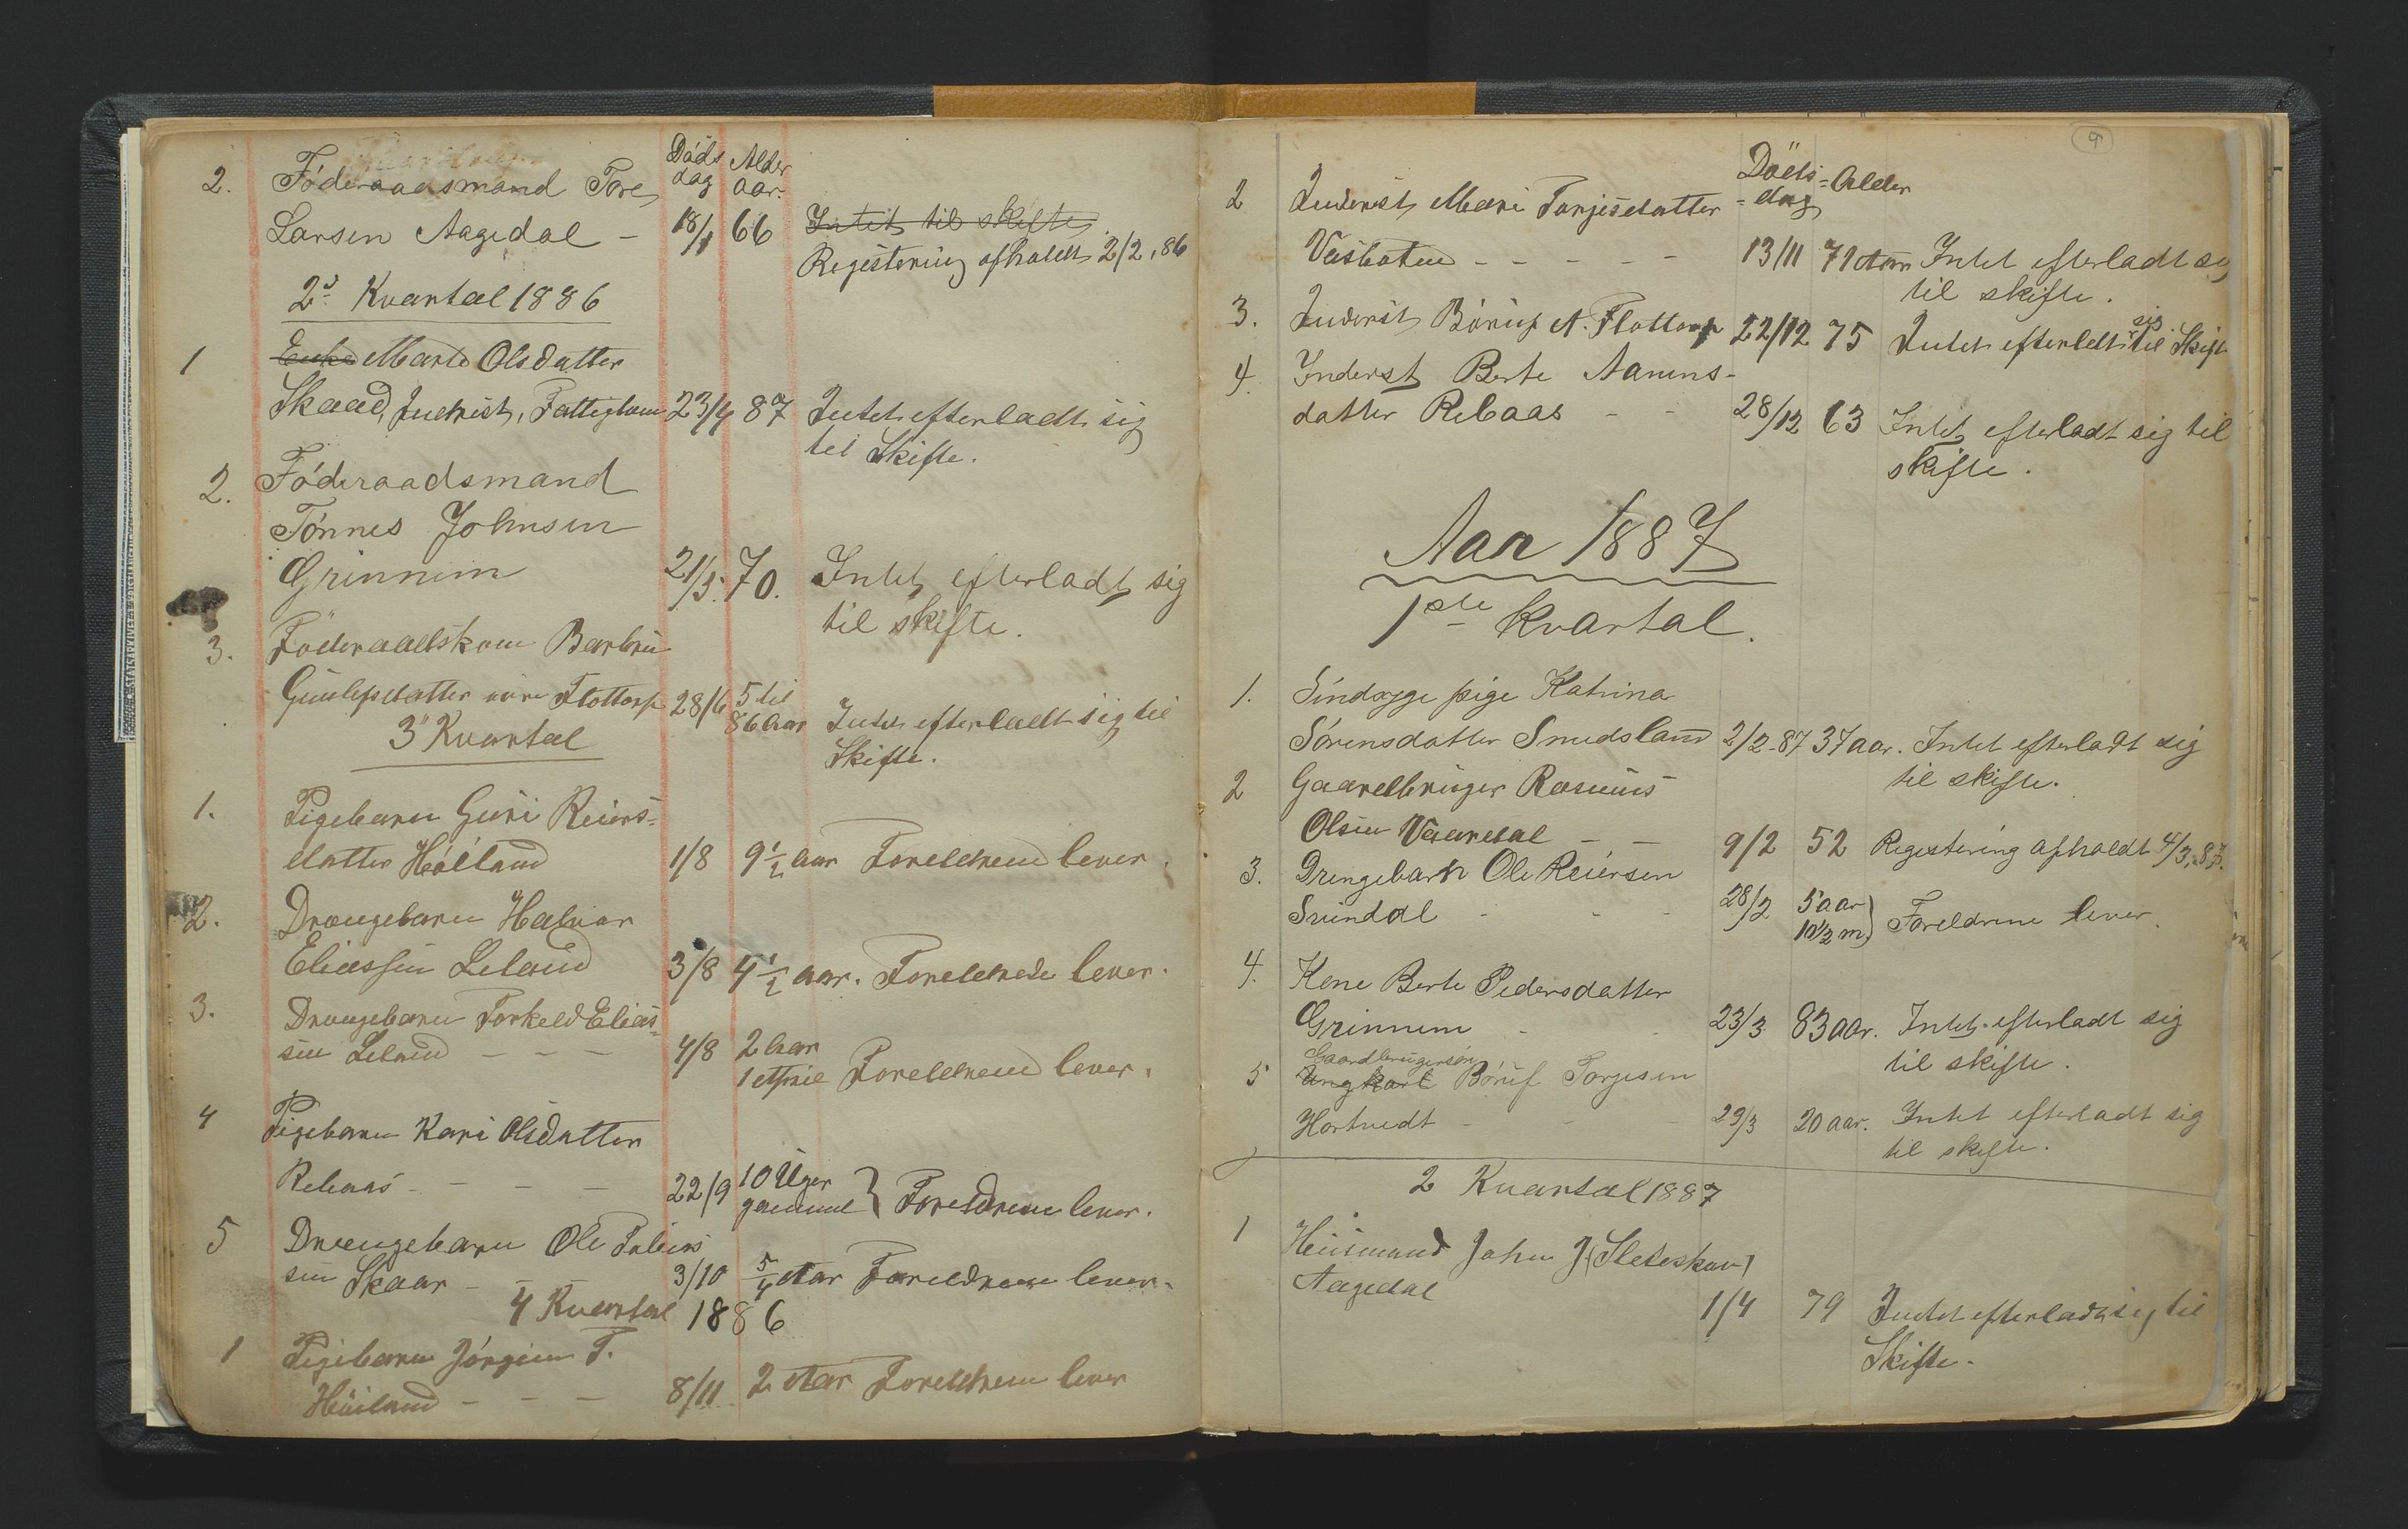 Döds Alder
dag aar.
2. Föderaadsmand Tore
Larsen Aagedal - 18/1 66 Intet til skifte
Registering afholdt 2/2, 86
2d Kvartal 1886
1 Enke Marte Olsdatter
Skaad, Inderst, Fattiglem 23/4 87 Intet efterladt sig
til Skifte.
2. Föderaadsmand
Tönnes Johnsen
Grinnim 21/5. 70. Intet efterladt sig
til skifte.
3. Föderaadskone Barbru
Gunlefsdatter Flottorp 28/6 5 til
86 aar Intet efterladt sig til
Skifte.
3' Kvartal
1. Pigebarn Guri Reiers=
datter Hölland 1/8 9 1/2 aar Foreldrene lever.
2. Drængebarn Halvor
Eliassen Leland 3/8 4 1/2 aar. Foreldrede lever.
3. Drængebarn Torkeld Elias=
sen Leland - - - 4/8 2 aar
1 Foreldrene lever.
4 Pigebarn Kari Olsdatter
Rebaas - - - - 22/9 10 Uger
gammel } Foreldrene lever.
5 Drængebarn Ole Tobias
sen Skaar - - - 3/10 5/4 Aar Foreldrene lever.
4 Kvartal 1886
1 Pigebarn Jörgine T.
Hüiland - - - 8/11 2 Aar Foreldrene lever
9
Döds= Alder
=dag
2 Inderst Mari Tarjesdatter
Vasboten - - - - - 13/11 71 Aar Intet efterladt sig
til skifte.
3. Inderst Böruf A. Flottorp 22/12 75 Intet efterladt sig til Skift
4. Inderst Berte Aanens-
datter Rebaas - - 28/12 63 Intet efterladt sig til
skifte.
Aar 1887
1ste Kvartal.
1. Sindsyge pige Katrina
Sörensdatter Snudsland 2/2-87 37 aar. Intet efterladt sig
til skifte.
2 Gaardbruger Rasmus
Olsen Vaardal - - 9/2 52 Registering afholdt 4/3, 87.
3. Drengebarn Ole Reiersen
Svindal - - - 28/2 5 aar
10 1/2 m } Foreldrene lever.
4. Kone Berte Pedersdatter
Grinnem - - 23/3 83 aar. Intet efterladt sig
til skifte.
Gaardbrugersön
5 Ungkarl Böruf Torjesen
Hortvedt - - - 29/3 20 aar. Intet efterladt sig
til skifte.
2 Kvartal 1887
1 Heüsmand John J. (Sleteskov)
Aagedal 1/4 79 Intet efterladt sig til
Skifte.